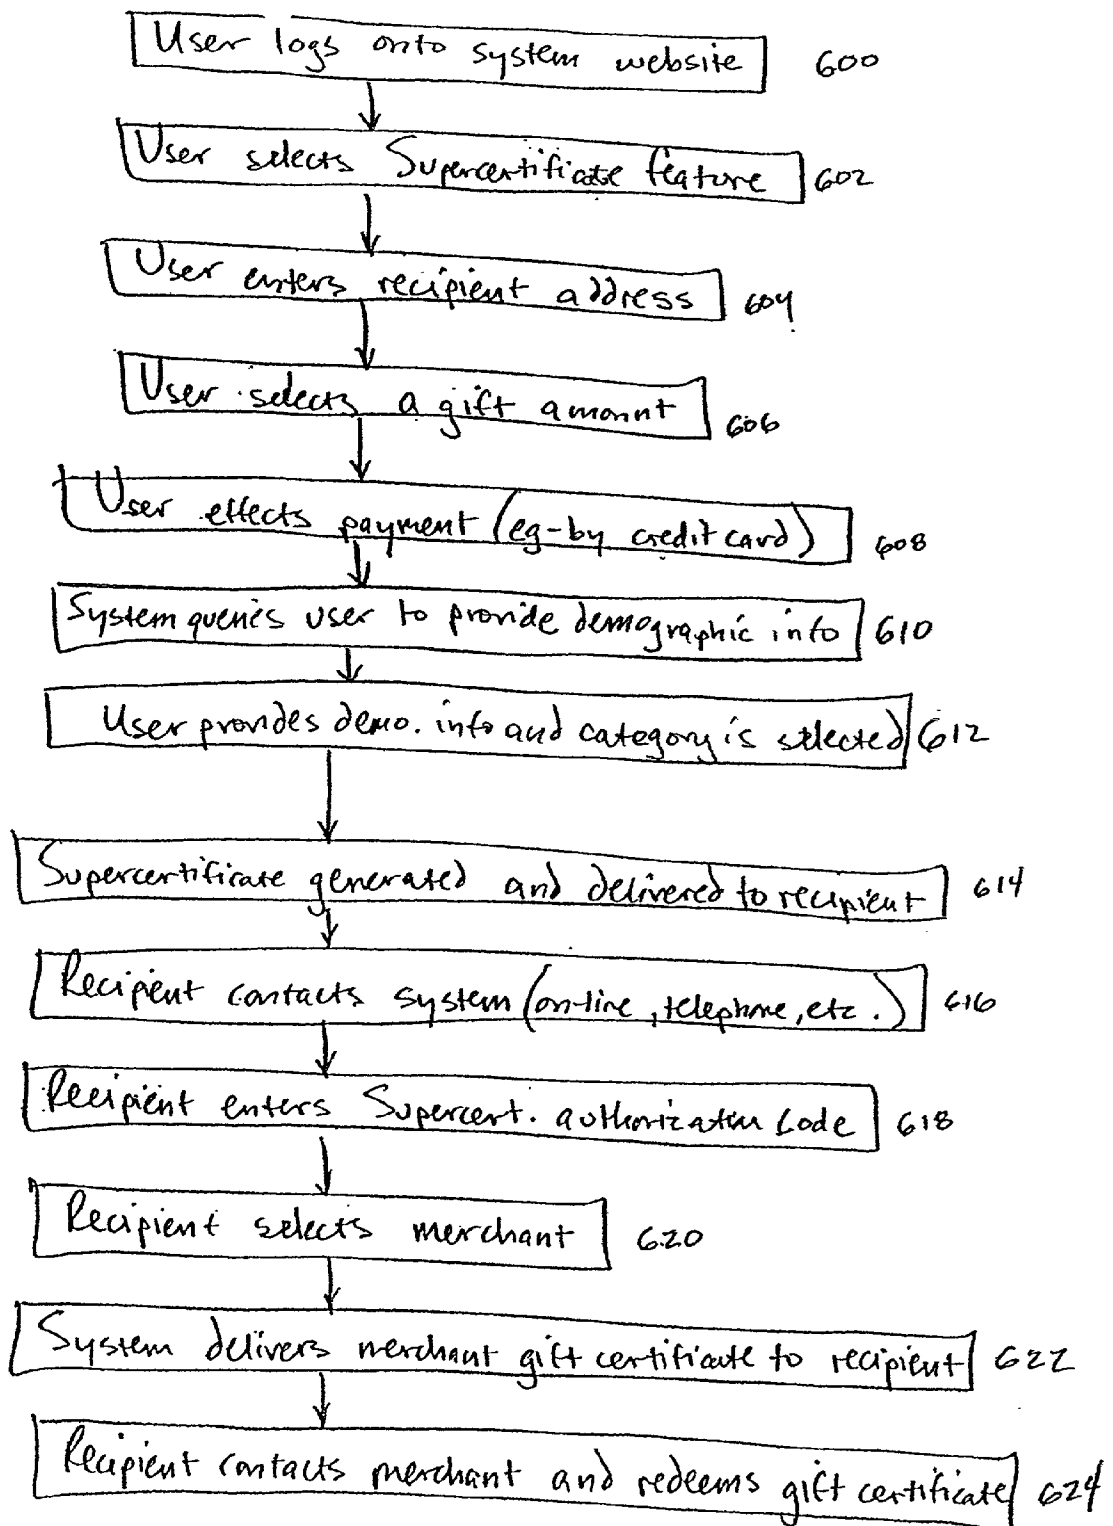 User logs onto system website 600
User selects Supercertificate feature 602
User enters recipient address 604
User selects a gift amount 606
User effects payment (eg-by credit card) 608
System queries user to provide demographic info 610
User provides demo. info and category is selected 612
Supercertificate generated and delivered to recipient 614
Recipient contacts system (on-line, telephone, etc.) 616
Recipient enters Supercert. authorization code 618
Recipient selects merchant 620
System delivers merchant gift certificate to recipient 622
Recipient contacts merchant and redeems gift certificate 624